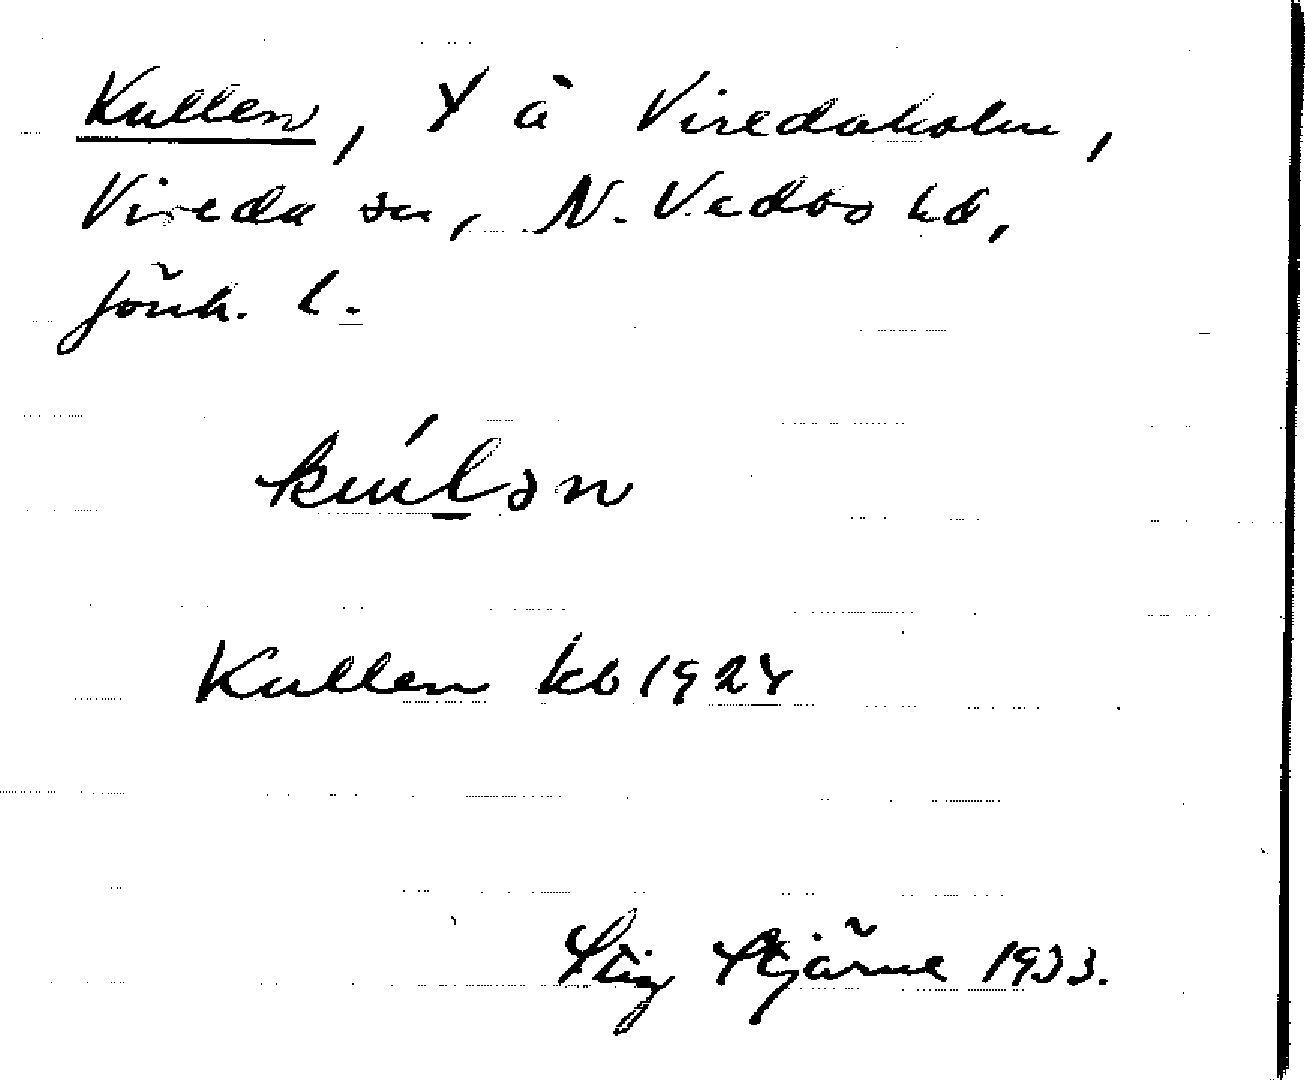 Kullen, Y å Viredaholm,
Vireda sn, N. Vedbo hd,
Jönk. l.
kuĺ̲ən
Kullen kb 1924
Stig Stjärne 1933.